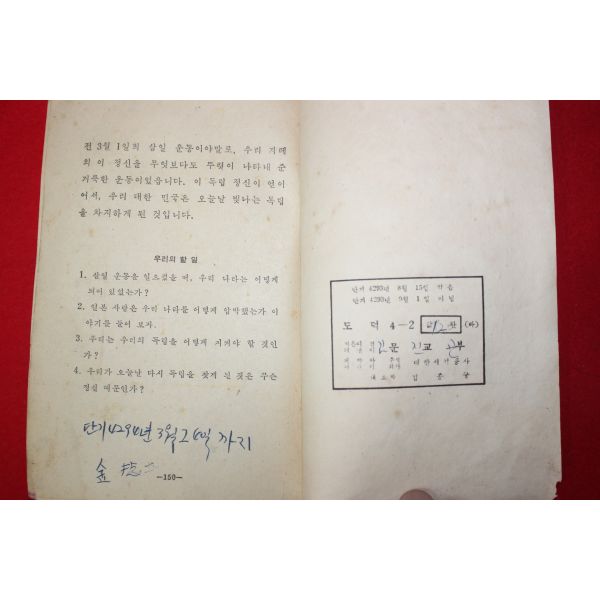 전 3월 1일의 삼일 운동이야말로, 우리 겨레
의 이 정신을 무엇보다도 뚜렷이 나타내 준
거룩한 운동이었습니다. 이 독립 정신이 얻어
어서, 우리 대한 민국은 오늘날 빛나는 독립
을 차지하게 된 것입니다.
우리의 할 일
1. 삼일 운동을 일으켰을 때, 우리 나라는 어떻게
되어 있었는가?
2. 일본 사람은 우리 나라를 어떻게 압박했는가 이
야기를 들어 보자.
3. 우리는 우리의 독립을 어떻게 지켜야 할 것인
가?
4. 우리가 오늘날 다시 독립을 찾게 된 것은 무슨
정신 때문인가?
단기 4294년 3월 26일 까지
金
—150—
단기 4290년 8월 15일
단기 4290년 9월 1일
도 덕 4—2
문 교 부
대한